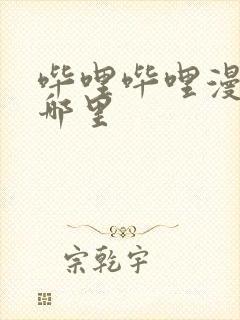 哔哩哔哩漫
那里
宗乾宇